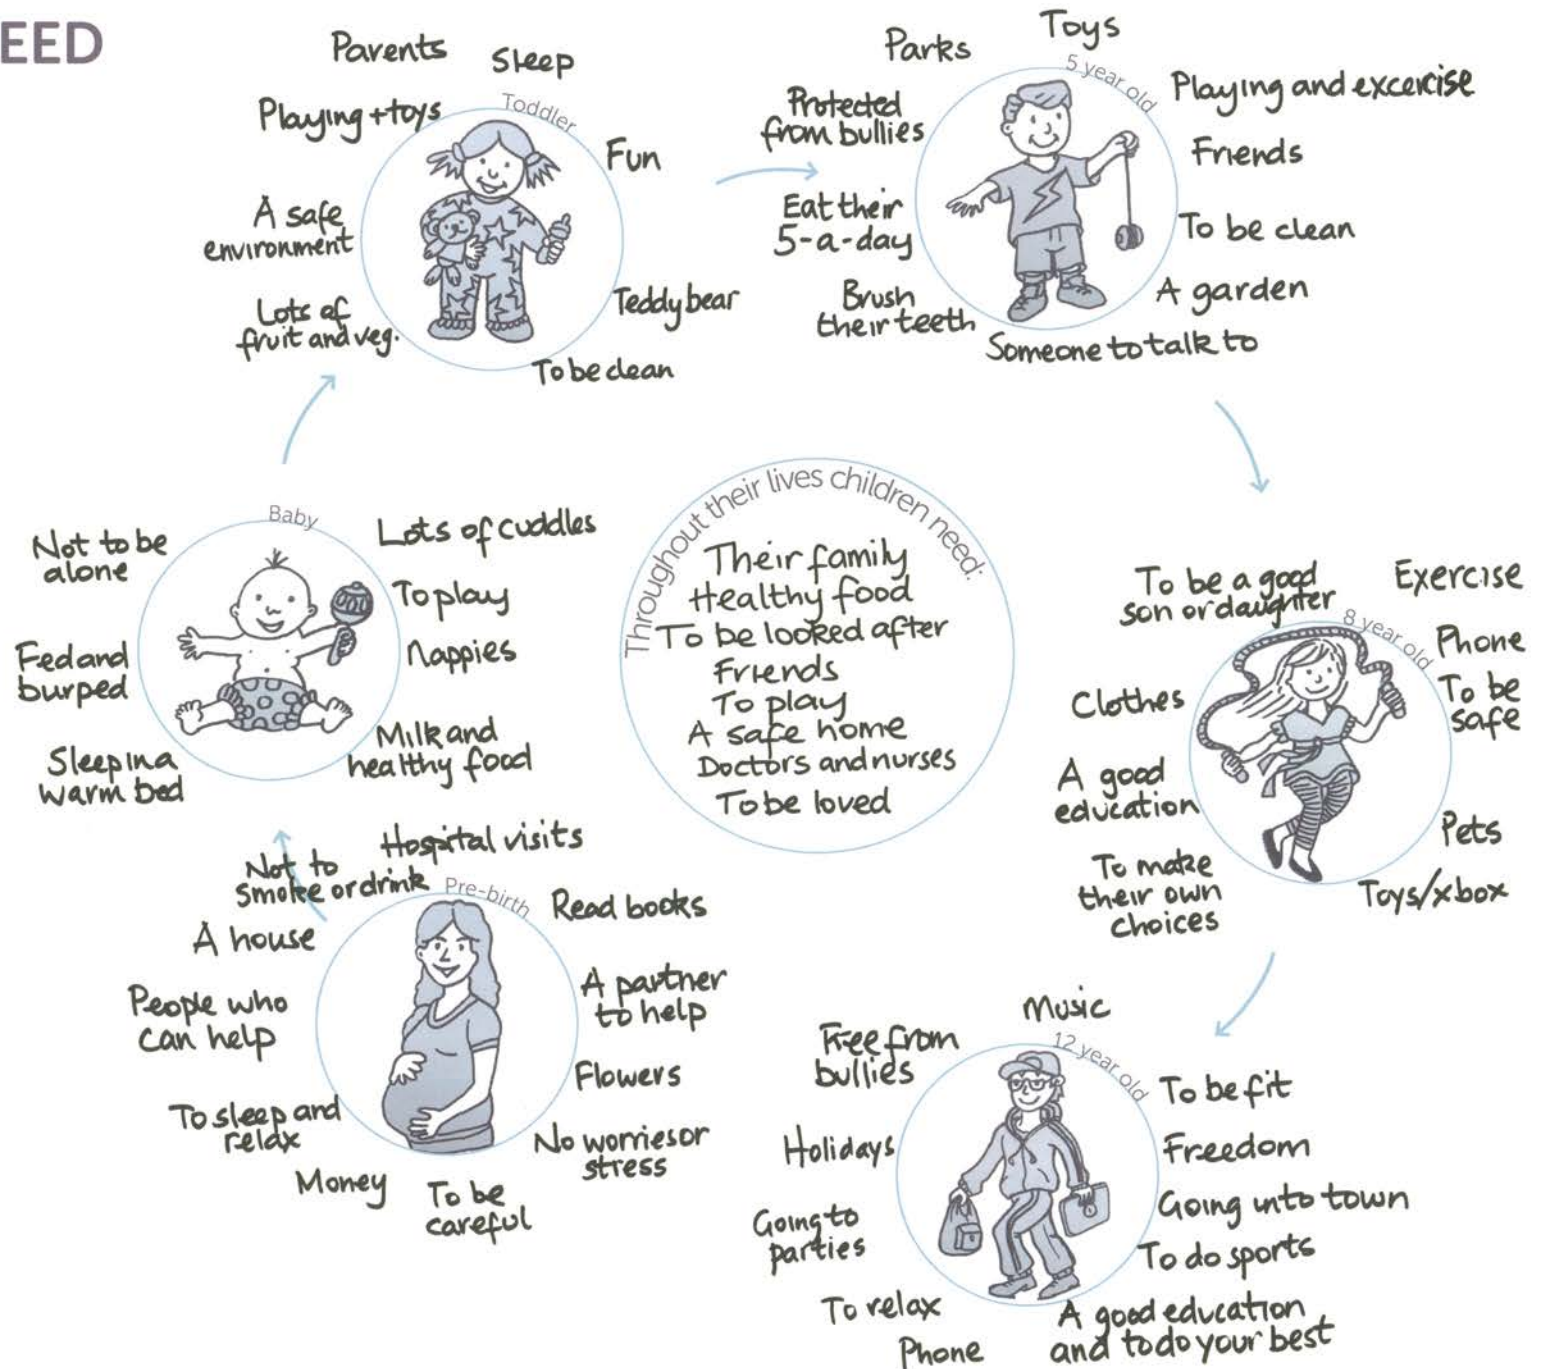 EED
Parents
Sleep
Toddler
Playing + toys
Fun
A safe
environment
Teddy bear
Lots of
fruit and veg.
To be clean
Toys
Parks
5 year old
Playing and excercise
Protected
from bullies
Friends
Eat their
5-a-day
To be clean
Brush
their teeth
A garden
Someone to talk to
Baby
Not to be
alone
Lots of cuddles
To play
Fed and
burped
Nappies
Sleep in a
warm bed
Milk and
healthy food
Throughout their lives children need:
Their family
Healthy food
To be looked after
Friends
To play
A safe home
Doctors and nurses
To be loved
To be a good
son or daughter
Exercise
8 year old
Phone
To be
safe
Clothes
A good
education
Pets
To make
their own
choices
Toys/xbox
Hospital visits
Not to
smoke or drink
Pre-birth
Read books
A house
A partner
to help
People who
can help
Flowers
To sleep and
relax
No worries or
stress
Money
To be
careful
Music
Free from
bullies
12 year old
To be fit
Holidays
Freedom
Going into town
Going to
parties
To do sports
To relax
A good education
and to do your best
Phone